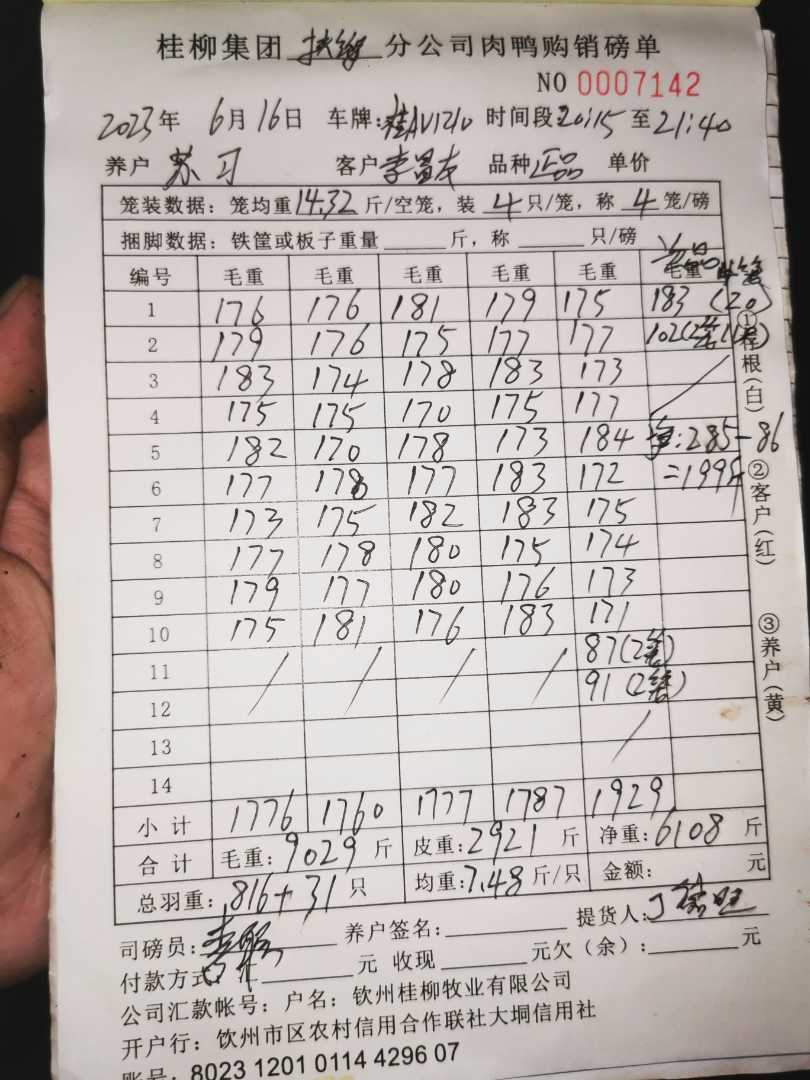 桂柳集团 扶绥 分公司肉鸭购销磅单
NO 0007142
2023年 6月16日 车牌:桂AV1210 时间段20:15至21:40
养户 苏习 客户 李昌友 品种 正品 单价
笼装数据:笼均重14.32斤/空笼,装 4 只/笼,称 4 笼/磅
捆脚数据:铁筐或板子重量 斤,称 只/磅
编号 毛重 毛重 毛重 毛重 毛重 毛重
1 176 176 181 179 175 183 (20)
2 179 176 175 177 177 102(2笼
3 183 174 178 183 173 /
4 175 175 170 175 177
5 182 170 178 173 184 净:285-86
6 177 178 177 183 172 =199斤
7 173 175 182 183 175
8 177 178 180 175 174
9 179 177 180 176 173
10 175 181 176 183 171
11 / / / / 87(2笼)
12 91(2笼)
13 /
14
小计 1776 1760 1777 1787 1929
合计 毛重:9029斤 皮重:2921斤 净重:6108斤
总羽重:816+31只 均重:7.48斤/只 金额: 元
司磅员: 养户签名: 提货人:
付款方式:汇 元 收现 元欠(余): 元
公司汇款帐号:户名:钦州桂柳牧业有限公司
开户行:钦州市区农村信用合作联社大垌信用社
账号:8023 1201 0114 4296 07
①存根(白)
②客户(红)
③养户(黄)